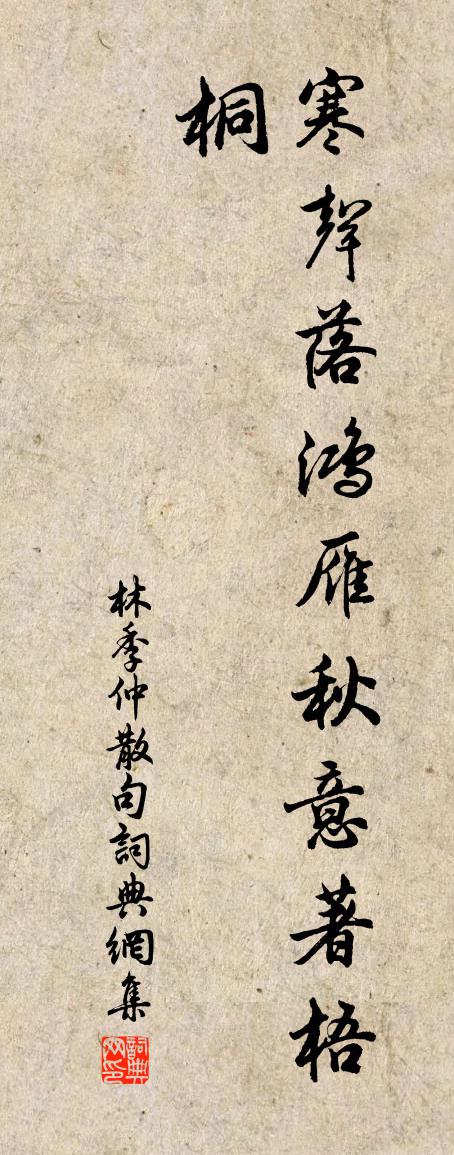 寒聲落鴻雁秋意著梧
桐
林季仲散句詞典網集
詞典網印